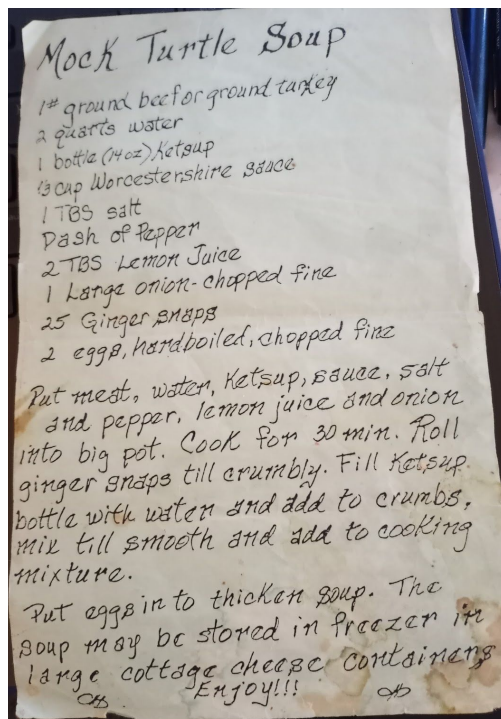 Mock Turtle Soup
1# ground beef or ground turkey
2 quarts water
1 bottle (14oz) Ketsup
1/3 cup Worcestershire sauce
1 TBS salt
Dash of Pepper
2 TBS Lemon Juice
1 Large onion-chopped fine
25 Ginger snaps
2 eggs, hardboiled, chopped fine
Put meat, water, Ketsup, sauce, salt
and pepper, lemon juice and onion
into big pot. Cook for 30 min. Roll
ginger snaps till crumbly. Fill Ketsup
bottle with water and add to crumbs,
mix till smooth and add to cooking
mixture.
Put eggs in to thicken soup. The
soup may be stored in freezer in
large cottage cheese containers
Enjoy!!!